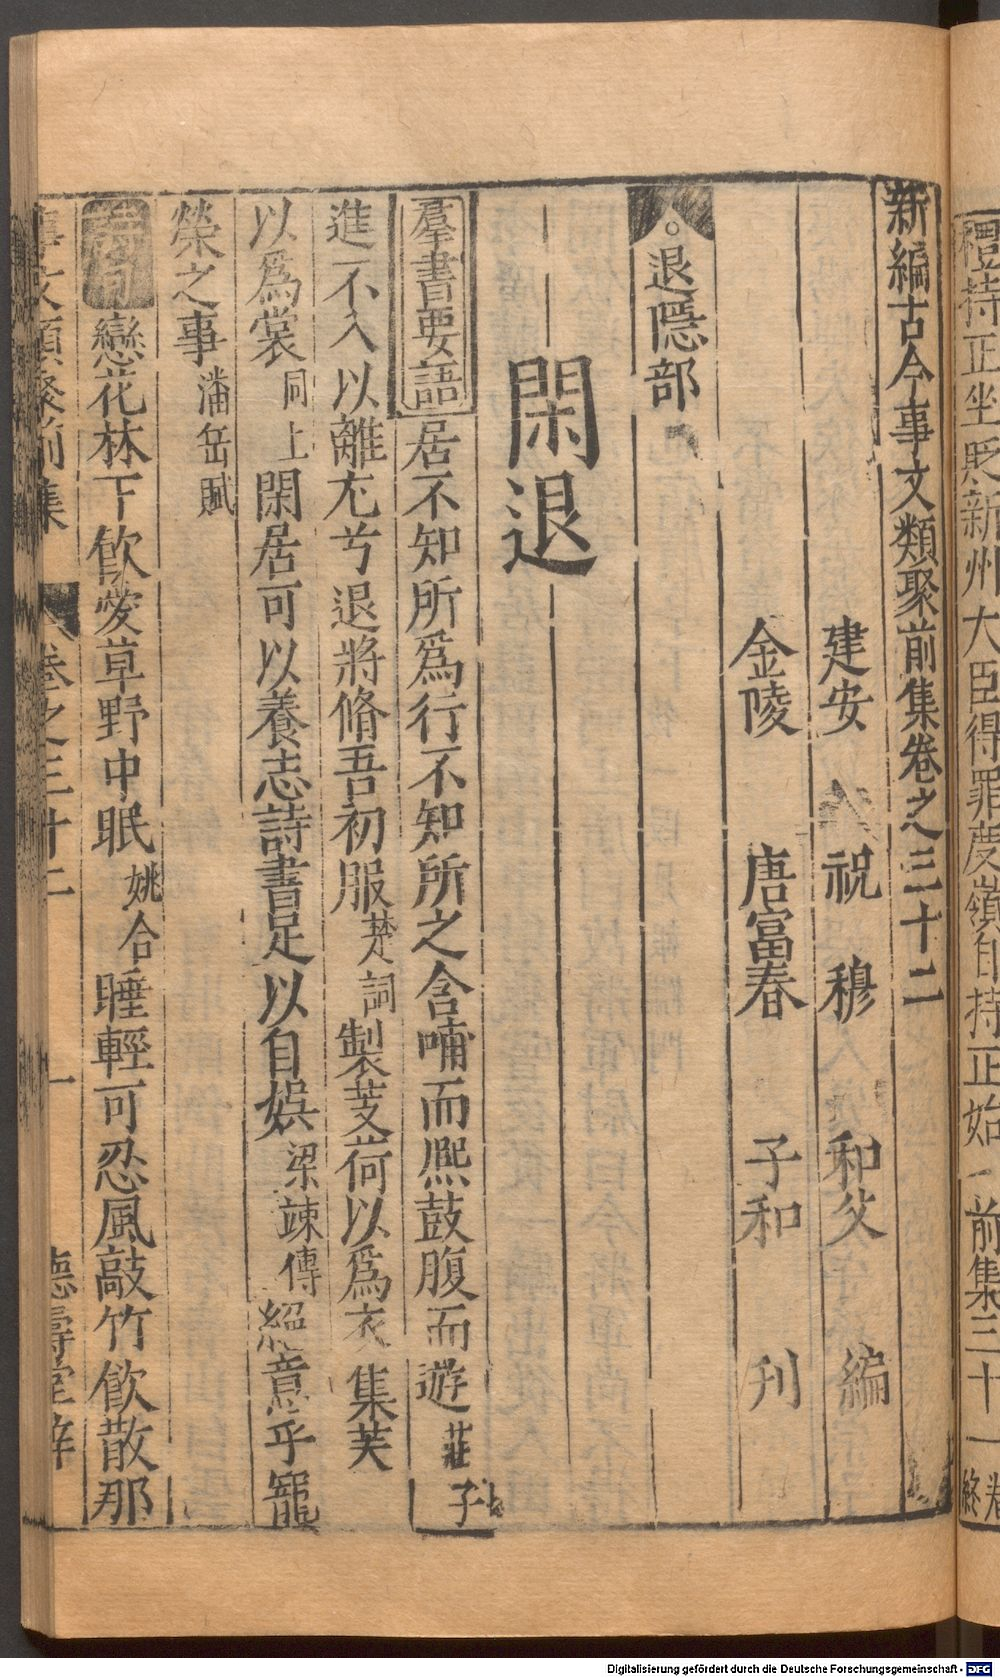 禮持正坐貶新州大臣得罪度嶺自持正始 前集三十一卷終
新編古今事文類聚前集卷之三十二
建安 祝 穆 和父 編
金陵 唐富春 子和 刋
退隱部
閑退
羣書要語居不知所爲行不知所之含哺而熈鼓腹而遊莊子
進不入以離尤兮退將脩吾初服楚詞製芰荷以爲衣集芙
以爲裳同上閑居可以養志詩書足以自娯梁竦傳絕意乎寵
榮之事潘岳賦
詩句戀花林下飲愛草野中眠姚合睡輕可忍風敲竹飲散那
事文類聚前集 卷之三十二 一 德壽堂梓
Digitalisierung gefördert durch die Deutsche Forschungsgemeinschaft - DFG